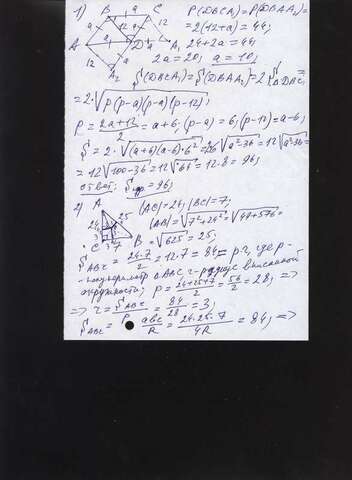 1) B a C P(DBCA₁)=P(DBAA₂)=
a 12 a 12 =2(12+a)=44;
A a D a A₁ 24+2a=44;
12 A₂ 2a=20; a=10;
S(DBCA₁)=S(DBAA₂)=2·S△DBC=
=2·√p(p-a)(p-a)(p-12);
p=(2a+12)/2=a+6; (p-a)=6; (p-12)=a-6;
S=2·√(a+6)(a-6)·6²=12√a²-36=
=12√100-36=12√64=12·8=96;
ответ: Sпр=96;
2) A |AC|=24; |BC|=7;
24 25 |AB|=√7²+24²=√49+576=
C 3 7 B =√625=25;
S ABC=24·7/2=12·7=84=p·r, где p-
-полупериметр △ABC r-радиус вписанной
окружности; p=(24+25+7)/2=56/2=28; =>
=> r=S ABC/p=84/28=3;
S ABC=abc/R=24·25·7/4R=84; =>